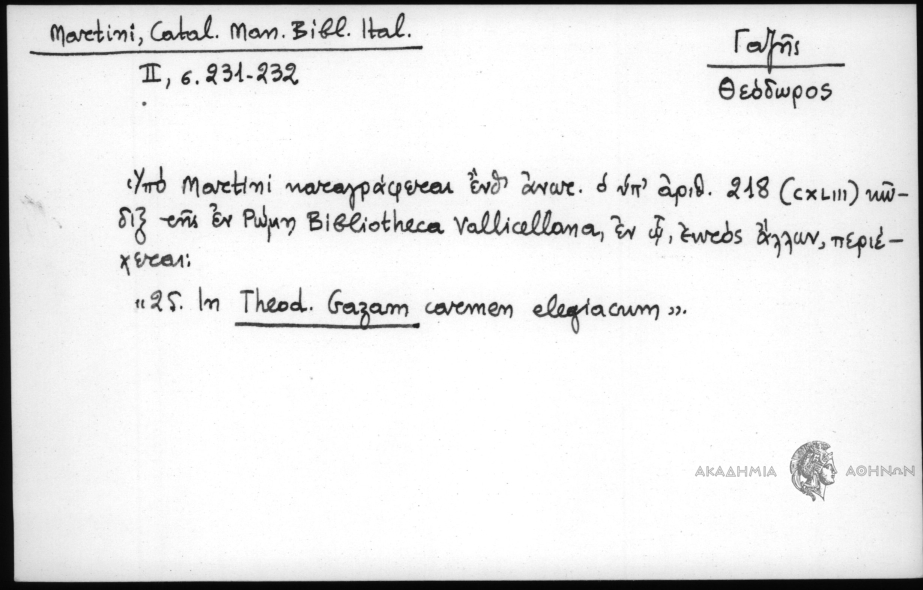 Martini, Catal. Man. Bibl. Ital.
II, σ. 231-232
Γαζῆς
Θεόδωρος
Ὑπὸ Martini καταγράφεται ἔνθ' ἀνωτ. ὁ ὑπ' ἀριθ. 218 (CXLIII) κῶ-
διξ τῆς ἐν Ρώμῃ Bibliotheca Vallicellana, ἐν ᾧ, ἐκτὸς ἄλλων, περιέ-
χεται:
«25. In Theod. Gazam carmen elegiacum».
ΑΚΑΔΗΜΙΑ ΑΘΗΝΩΝ